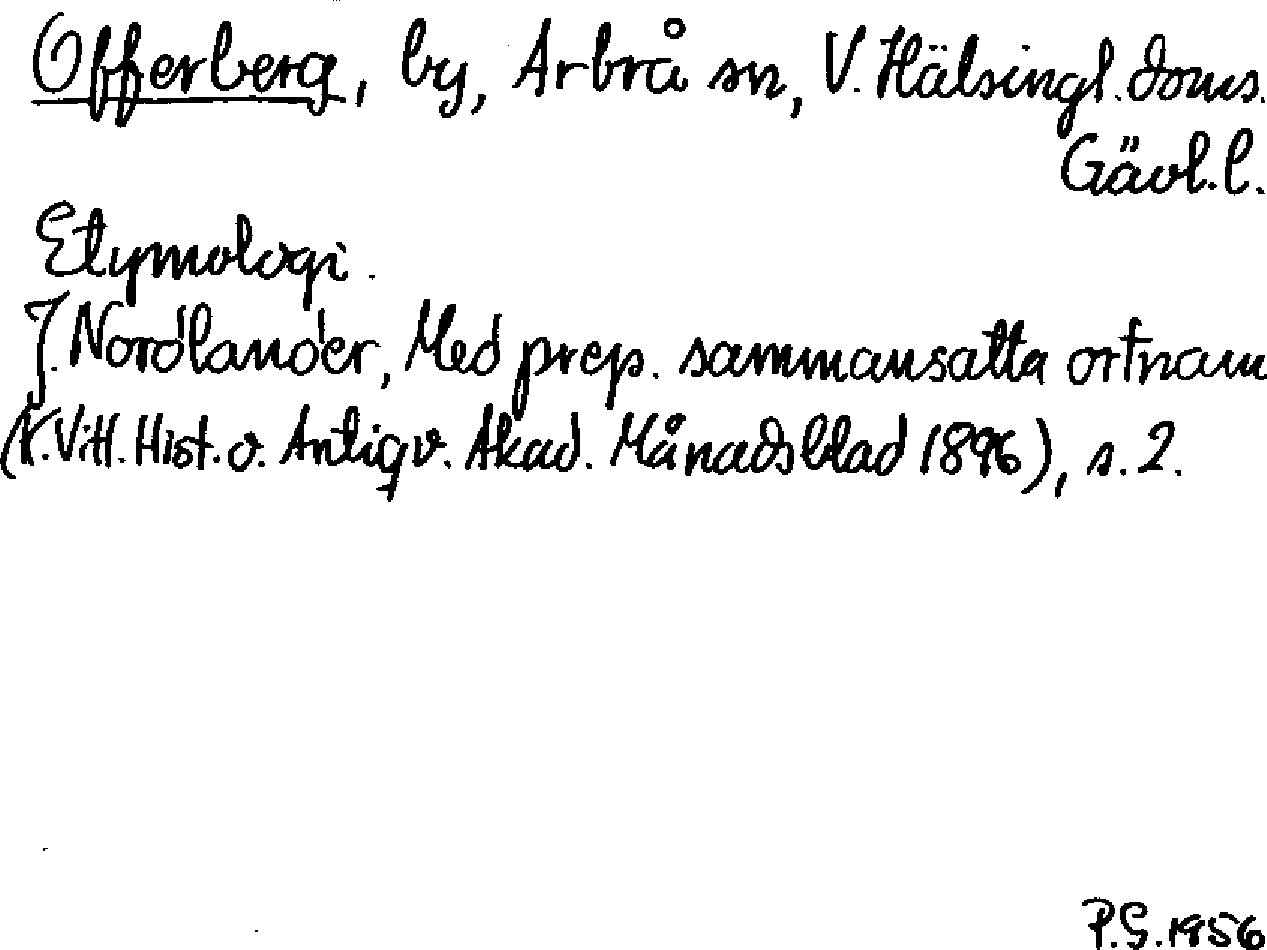 Offerberg, by, Arbrå sn, V. Hälsingl. doms.
Gävl. l.
Etymologi.
J. Nordlander, Med prep. sammansatta ortnam
(K. Vitt. Hist. o. Antiqv. Akad. Månadsblad 1896), s. 2.
P.G. 1956